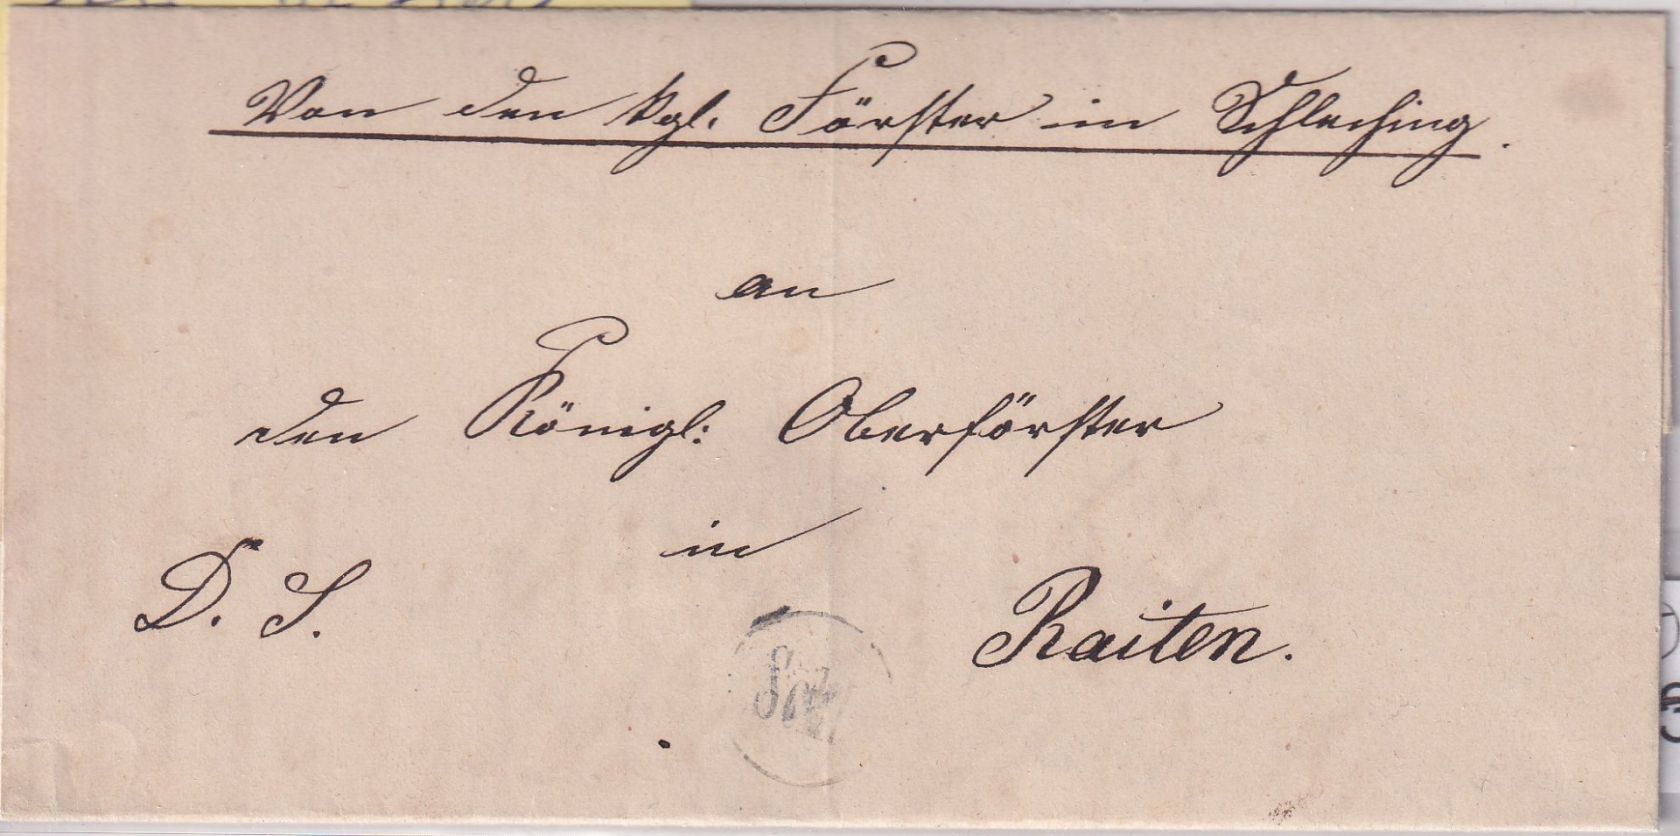 Von den kgl. Förster in Schleching.
an
den Königl: Oberförster
in
D. S.
Raiten.